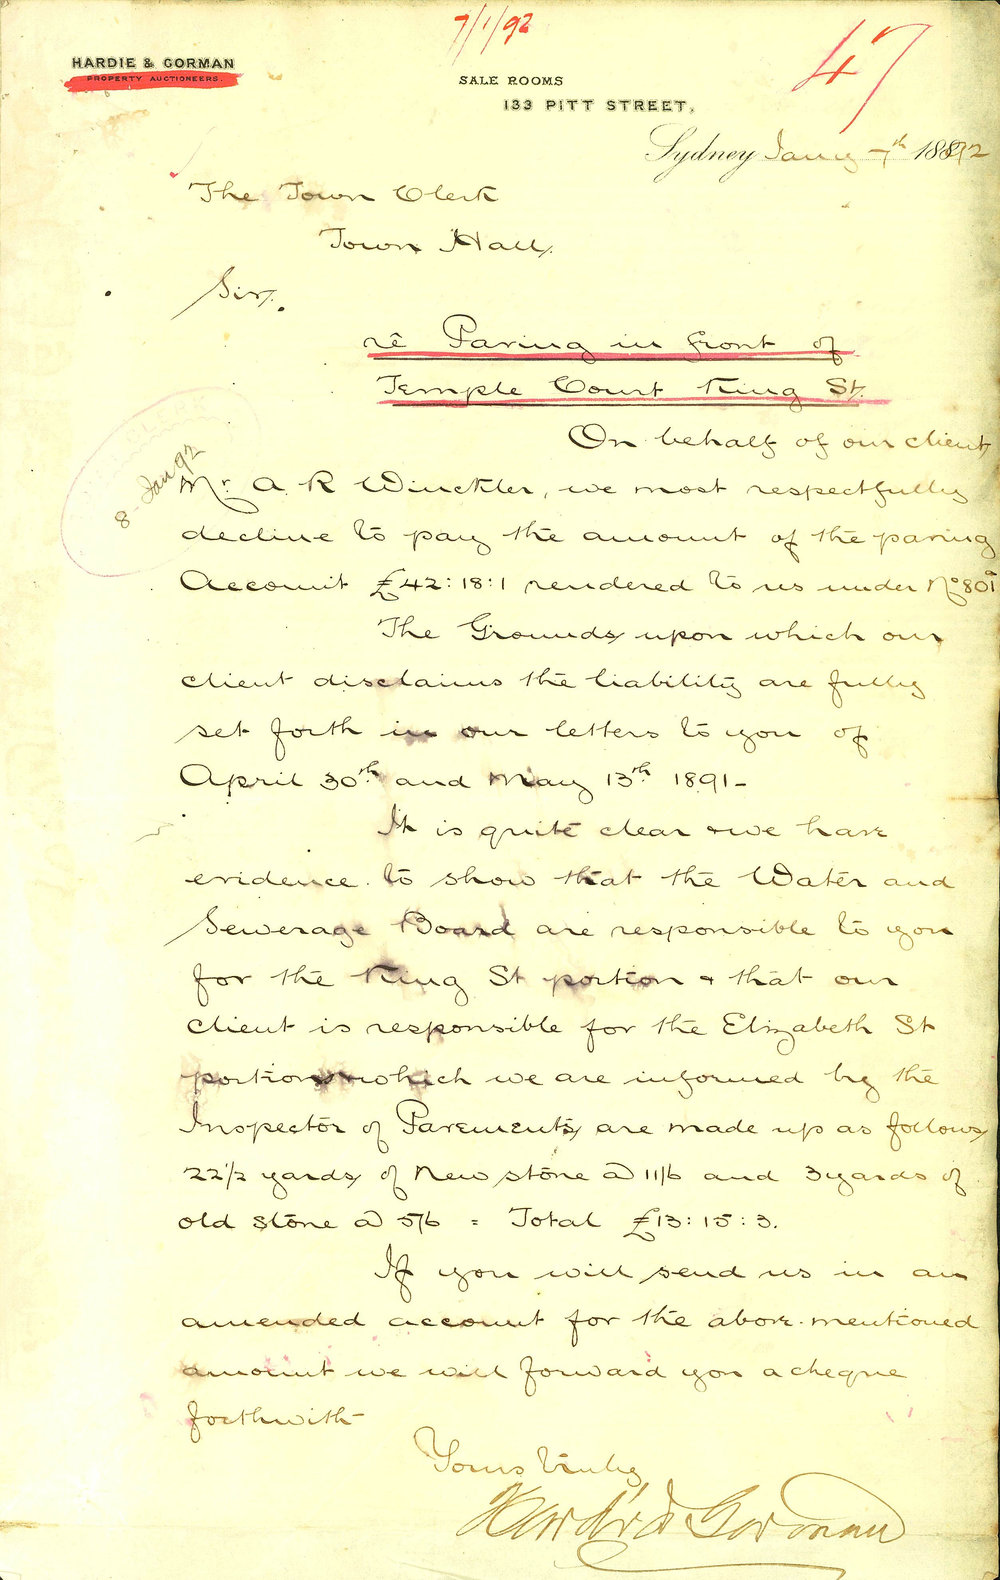 7/1/92
47
HARDIE & GORMAN
PROPERTY AUCTIONEERS.
SALE ROOMS
133 PITT STREET,
Sydney Jany 7th 1892
The Town Clerk
Town Hall,
Sir,
re Paving in front of
Temple Court King St.
8 - Jan 92
On behalf of our client
Mr. A R Winckler, we most respectfully
decline to pay the amount of the paving
Account £42:18:1 rendered to us under No 801
The Grounds upon which our
client disclaims the liability are fully
set forth in our letters to you of
April 30th and May 13th 1891 -
It is quite clear & we have
evidence to show that the Water and
Sewerage Board are responsible to you
for the King St portion & that our
client is responsible for the Elizabeth St
portion which we are informed by the
Inspector of Pavements, are made up as follows,
22 1/2 yards of New stone @ 11/6 and 3 yards of
old stone @ 5/6 = Total £13:15:3.
If you will send us in an
amended account for the above mentioned
amount we will forward you a cheque
forthwith -
Yours truly
Hardie & Gorman